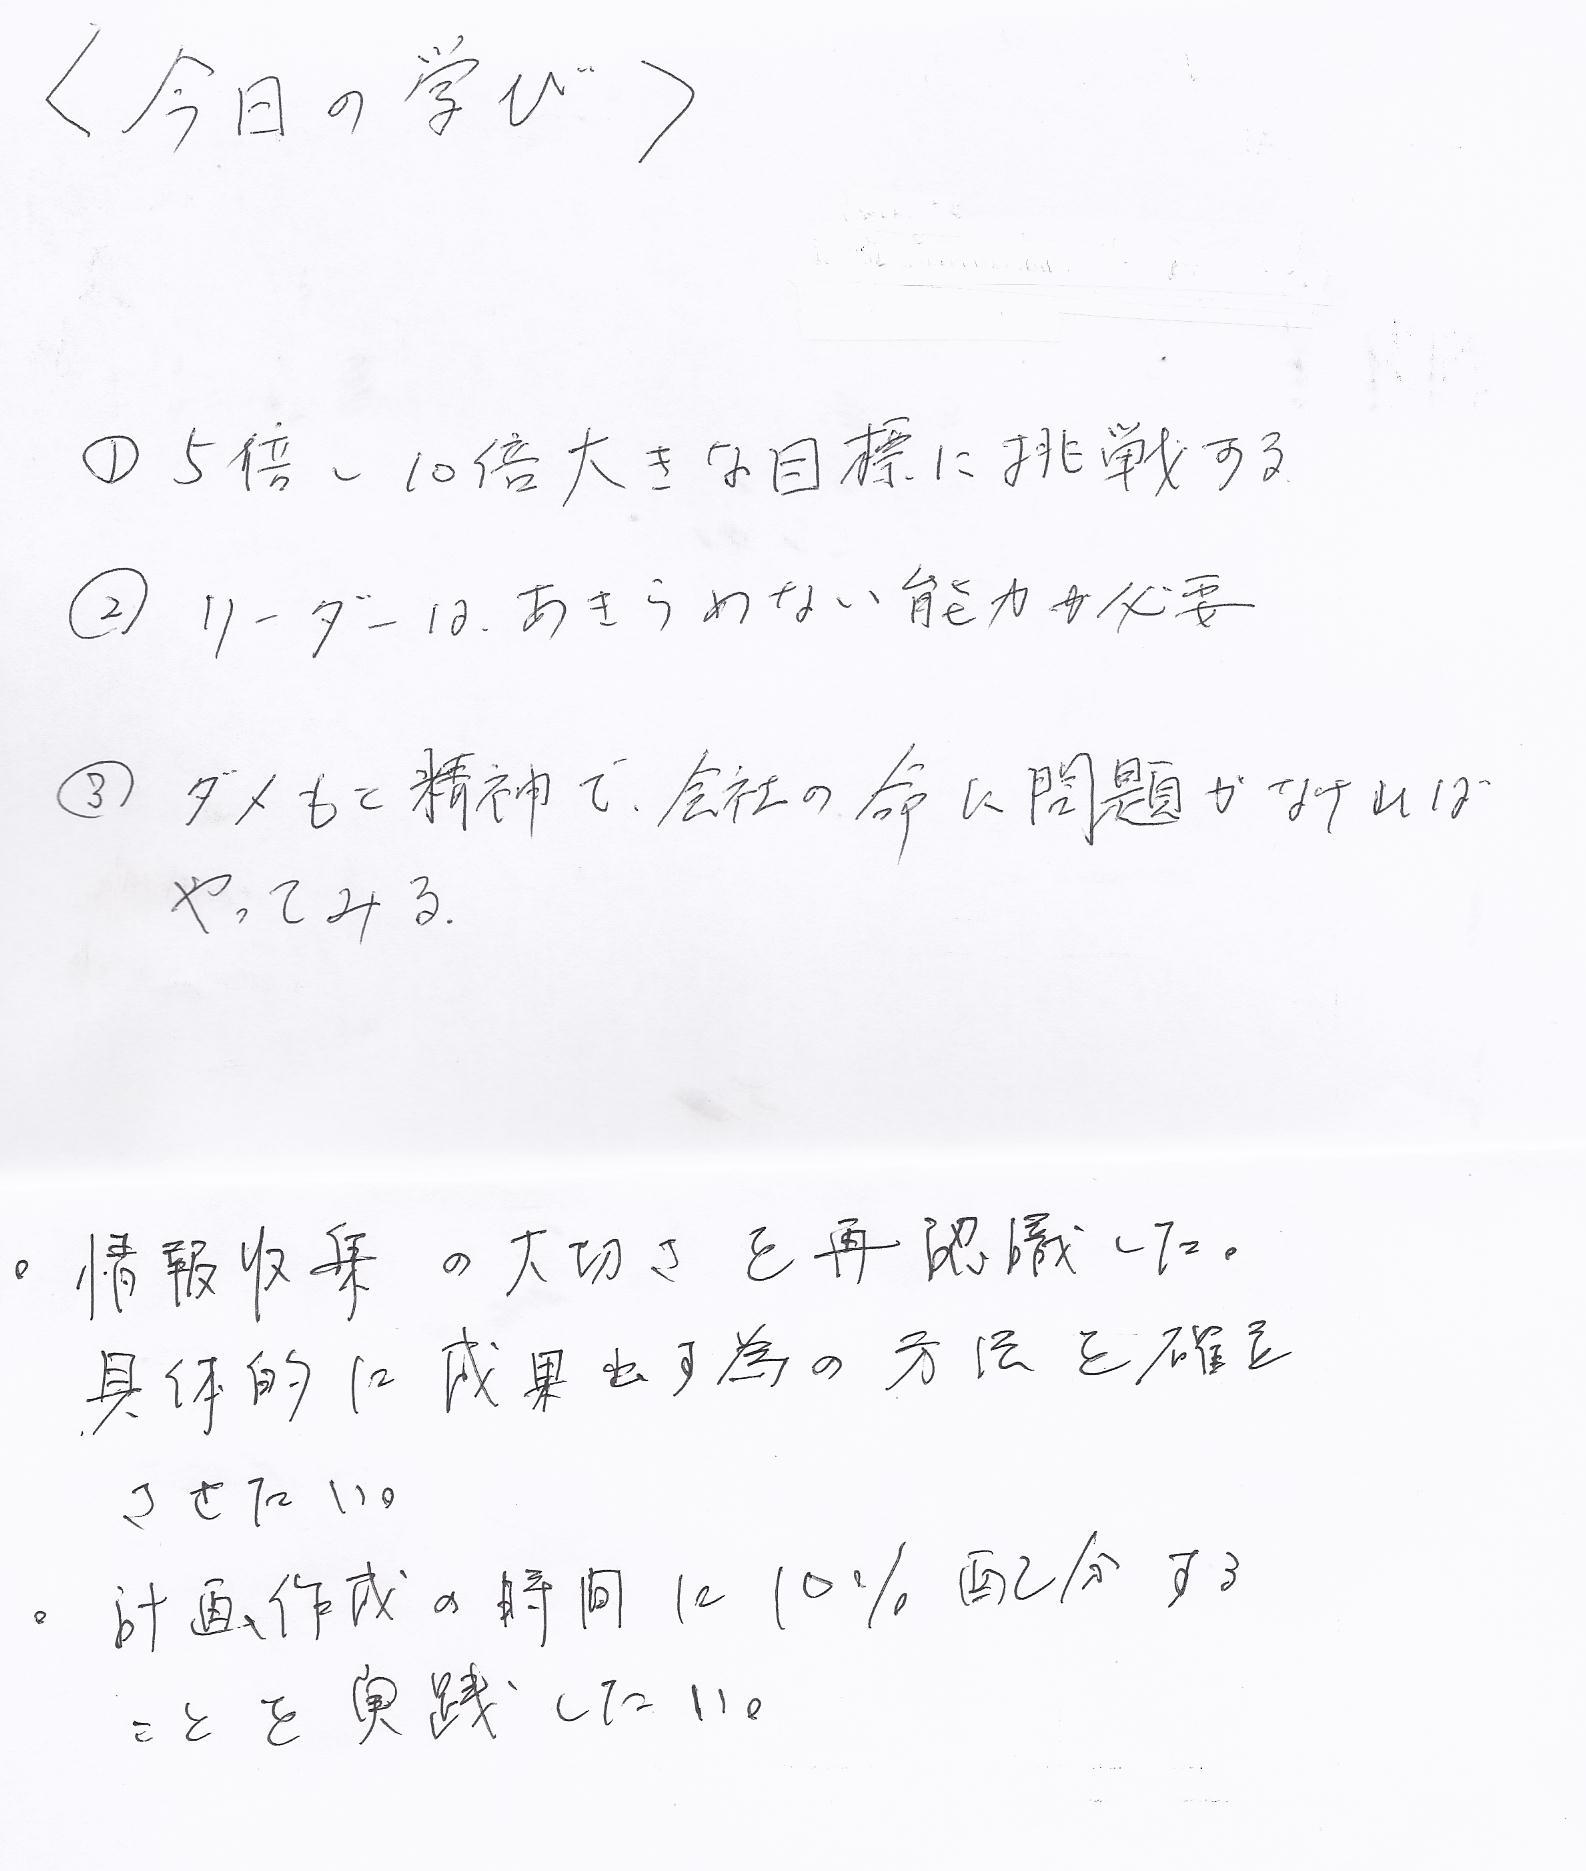 〈今日の学び〉
① 5倍~10倍大きな目標に挑戦する
② リーダーは、あきらめない能力が必要
③ ダメもと精神で、会社の命に問題がなければ
やってみる.
。情報収集の大切さを再認識した。
具体的に成果出す為の方法を確立
させたい。
。計画作成の時間に10%配分する
ことを実践したい。